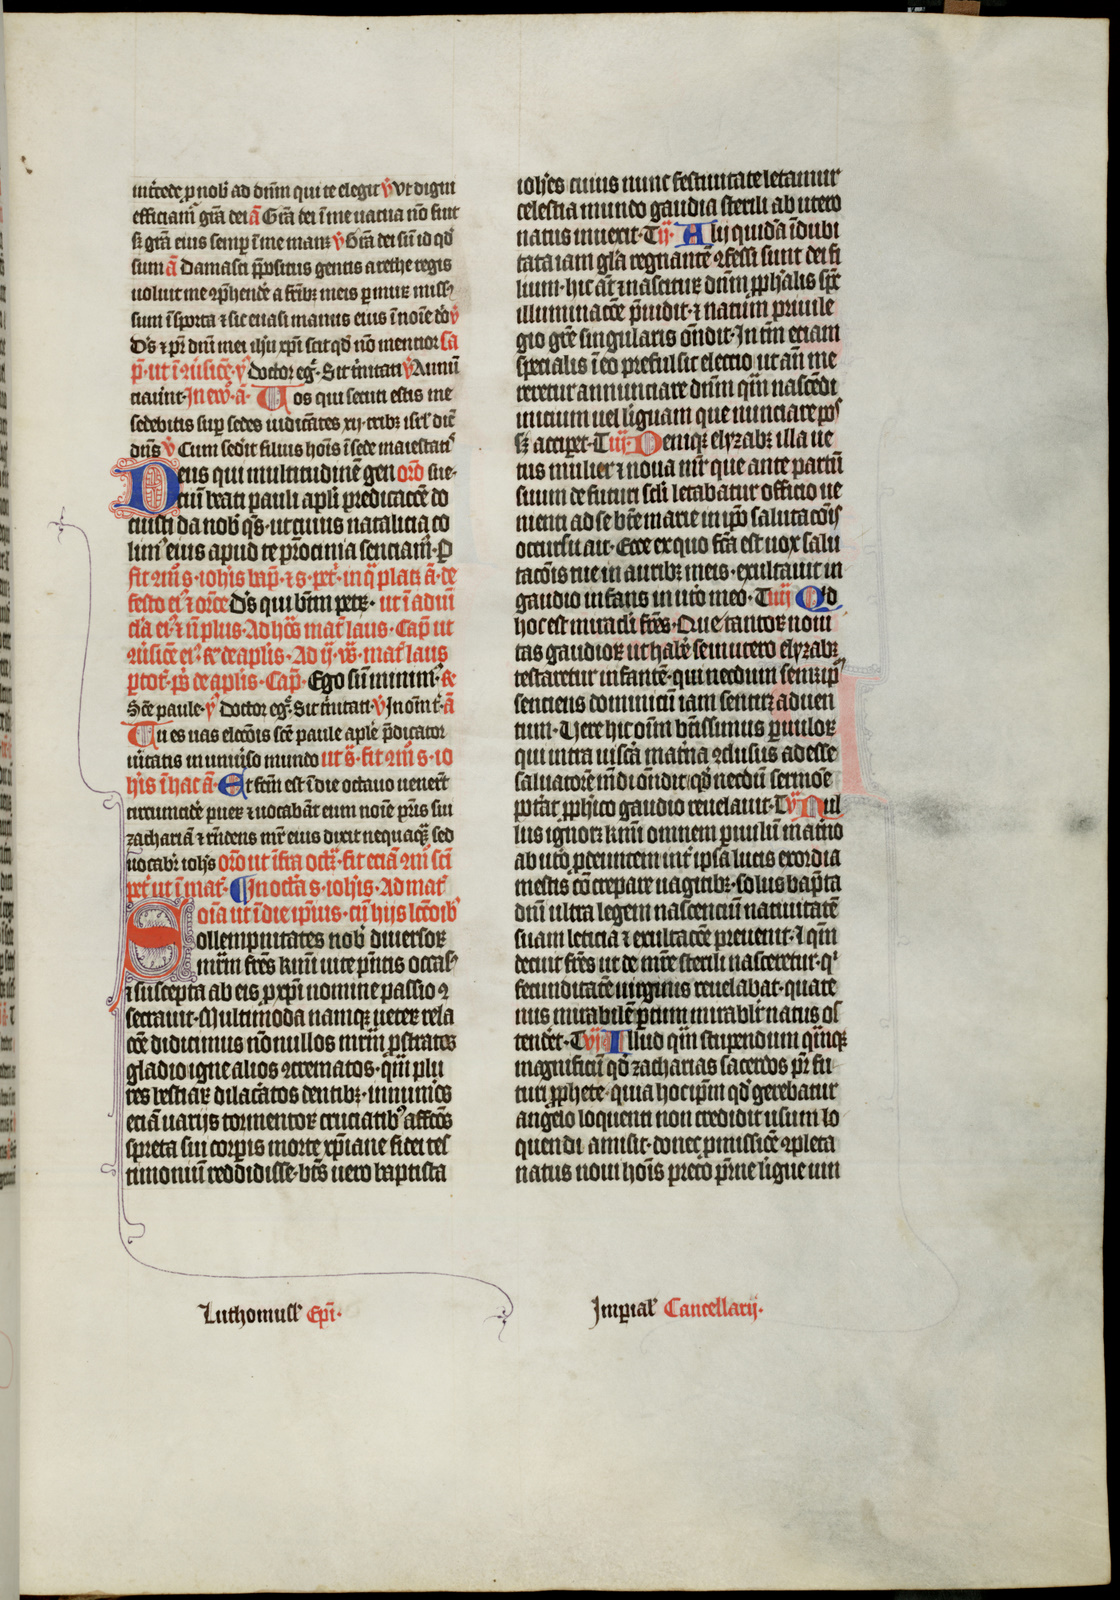 int̾cede p̲ nob̾ ad dn̄m qui te elegit v̾ Vt digni
efficiam̾ gr̄a dei a̅ Gr̄a dei ī me uacua nō fuit
sꝫ gr̄a eius semp̲ ī me manꝫ v̾ Gr̄a dei sū id qd̾
sum a̅ Damasci p̄positus gentis arethe regis
uoluit me 9p̄hende᷑ a fr̄ibꝫ meis p̲ mur̾ miss9
sum ī sporta ⁊ sic euasi manus eius ī noīe dn̄i v̾
D̾s ⁊ pr̄ dn̄i mei ih̾u xp̄i scit qd̾ nō mentior
p̄. ut ī 9u̾sice. v̾ Doctor eg̾. Sit t̾nitati v̾ Annū
ciau̾nt. In ew̾. a̅. Uos qui secuti estis me
sedebitis sup̲ sedes iudicātes xij. tribꝫ isrl̾ dic̄
dn̄s v̾ Cum sed̾it filius hoīs ī sede maiestati9
Deus qui multitudinē gen oro̅ ciū
beati pauli apl̄i p̄dicacōe do
cuisti da nob̾ q̄s. ut cuius natalicia co
lim9 eius apud te pr̄ocinia senciam9. P
fit 9m̄ s. ioh̾is bap̄. ⁊ s. pet̾. in q̄ plat̾ a̅. de
festo ei9 ⁊ or̄oe D̾s qui bt̄m petꝝ. ut ī aduī
cl̾a ei9 ⁊ n̄ plus. Ad hō̾s mat̾ laus. Cap̄. ut
9u̾sice ei9. ꝶ de apl̾is. Ad ij. w̾. mat̾ laus
p̲tot̾. ps̾ de apl̾is. Cap̄. Ego sū minim9. ꝶ
Sc̄e paule. v̾ Doctor eg̾. Sit t̾nitati. v̾ In om̄. a̅
Tu es uas elecōis sc̄e paule apl̄e p̄dicator
ūitatis in uniūso mundo ut s̾. fit 9m̄ s. io
h̾is ī hac a̅. Et fc̄m est ī die octauo uener̄t
circumcide᷑ pueꝝ ⁊ uocabāt eum noīe pr̄is sui
zachariā ⁊ rn̄dens mr̄ eius dixit nequaqꝫ sed
uocabit̾ ioh̾s oro̅ ut īfra oct̄. fit eciā 9m̄ sc̄i
pet̾ ut ī mat̾. In oct̾a s. ioh̾is. Ad mat̾
Oīa ut ī die ip̄ius. cū hijs lc̄coīb9
Sollempnitates nob̾ diuersoꝝ
mr̄m fr̄es kmī uite p̄ntis occas9
⁊ suscepta ab eis p̲ xp̄i nomine passio 9
secrauit. Multimoda namqꝫ ueteꝝ rela
cōe didicimus nōnullos mr̄m p̲stratos
gladio igne alios 9crematos. q̄m plu
res bestiaꝝ dilac̾atos dentibꝫ. innum̾os
eciā uarijs tormentoꝝ cruciatib9 affc̄os
spreta sui corp̲is morte xp̄iane fidei tes
timoniū reddidisse. bt̄s uero baptista
ioh̾es cuius nunc festiuitate letamur
celestia mundo gaudia sterili ab utero
natus inuexit. Tij. Alij quidā īdubi
tata iam gl̄a regnantē 9fessi sunt dei fi
lium. hic aūt ⁊ nasciturꝫ dn̄m p̲ph̾alis sp̄c
illuminacōe p̄uidit. ⁊ natum priuile
gio gr̄e singularis on̄dit. In tm̄ eciam
specialis ī eo prefulsit electio. ut an̄ me
reretur annunciare dn̄m q̄m nascēdi
inicium uel liguam que nunciare pos
sꝫ acciperet. Tiij. Deniqꝫ elyzabꝫ illa ue
tus mulier ⁊ noua mr̄ que ante partū
suum de futuri scl̾i letabatur officio ue
nienti ad se bt̄e marie in ip̄o salutacōis
occursu ait. Ecce ex quo fc̄a est uox salu
tacōis tue in auribꝫ meis. exultauit in
gaudio infans in utō meo. Tiiij Qid
hoc est miracl̾i fr̄es. Que tantoꝝ noui
tas gaudioꝝ ut hab̾e se in utero elyzabꝫ
testaretur infantē. qui necdum sen̄ rup̄
senciens dominicū iam sentirꝫ aduen
tum. Uere hic oīm bt̄issimus p̲uuloꝝ
qui intra uisc̾a mat̾na 9clusus adesse
saluatorē mūdi on̄dit. qꝫ necdū sermōe
pot̾at p̲ph̾ico gaudio reuelauit. Tv. Nul
lus ignorꝫ kmī omnem p̲uulū mat̾no
ab utō p̲deuntem int̾ ipsa lucis exordia
mestis cōcrepare uagitibꝫ. solus bap̄ta
dn̄i ultra legem nascenciū natiuitatē
suam leticia ⁊ exultacōe preuenit. ⁊ q̄m
decuit fr̄es ut de mr̄e sterili nasceretur. q̾
fecunditatē uirginis reuelabat. quate
nus mirabilē p̲tum mirabilr̄ natus os
tendet̾. Tvj. Illud q̄m stupendum q̄inqꝫ
magnificū qd̾ zacharias sacerdos pr̄ fu
turi p̲phete. quia hoc ip̄m qd̾ gerebatur
angelo loquenti non credidit usum lo
quendi amisit. donec p̲missiōe 9pleta
natus noui hoīs preco p̄rne ligue uin
Luthomusl̾ Ep̄i.
Imp̲ial̾ Cancellarij.